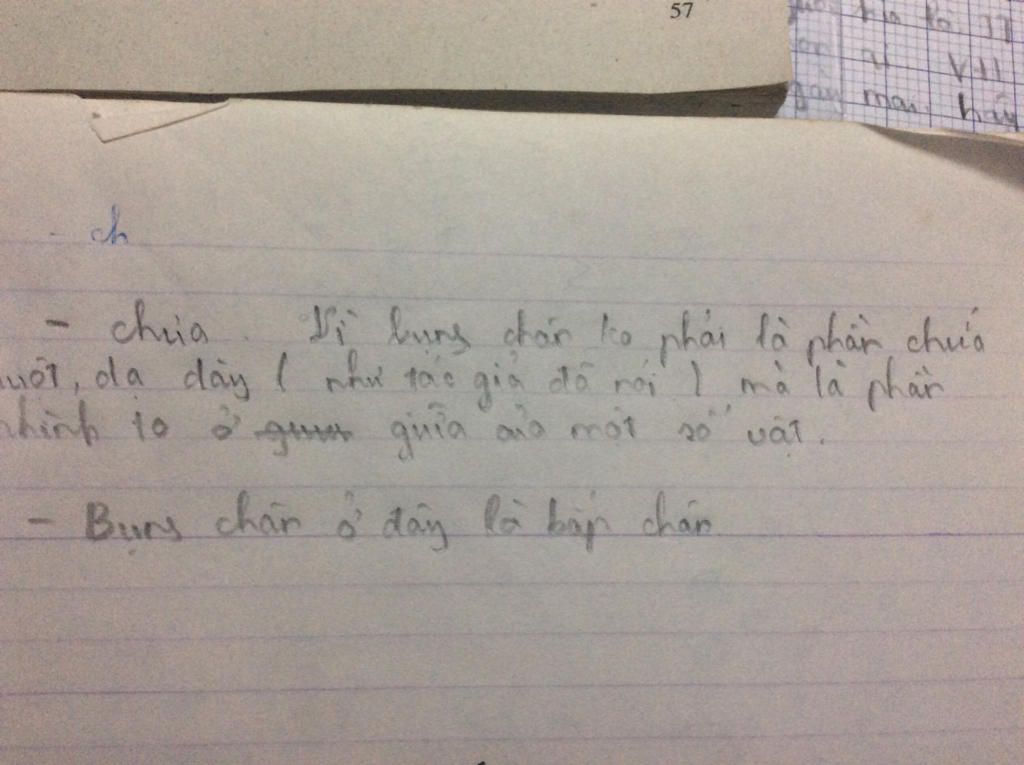 57
VII
mai hãy
- ch
- chưa. Vì bụng chân ko phải là phần chứa
ruột, dạ dày ( như tác giả đã nói ) mà là phần
phình to ở giữa của một số vật.
- Bụng chân ở đây là bắp chân